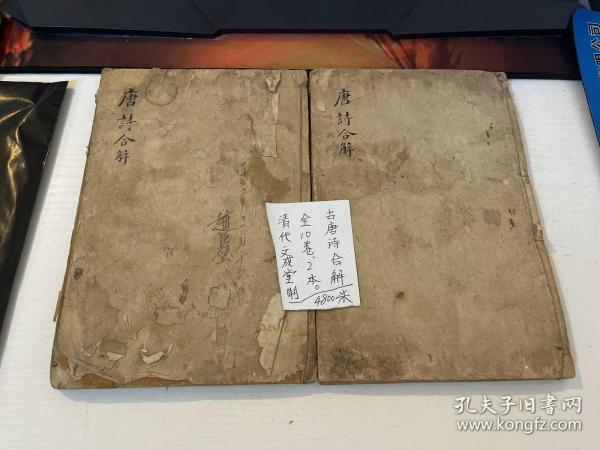 唐詩合解
唐詩合解
古唐诗合解
全10卷、2本。
清代文成堂刷
4800米
孔夫子旧书网
www.kongfz.com